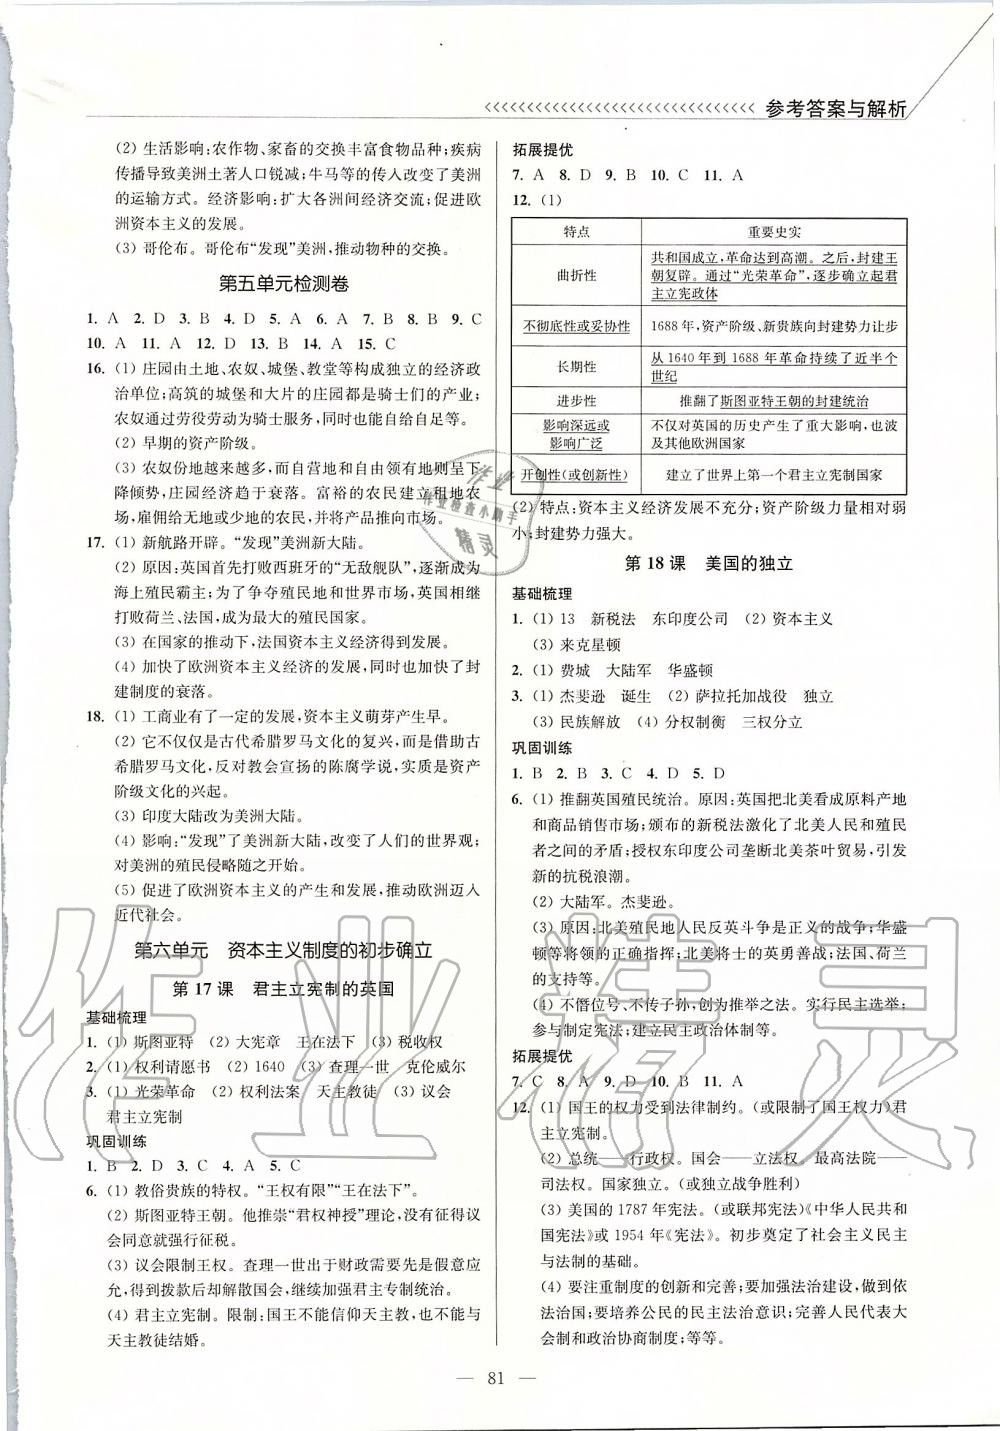 参考答案与解析
(2) 生活影响:农作物、家畜的交换丰富食物品种;疾病
传播导致美洲土著人口锐减;牛马等的传人改变了美洲
的运输方式。经济影响:扩大各洲间经济交流;促进欧
洲资本主义的发展。
(3) 哥伦布。哥伦布“发现”美洲,推动物种的交换。
第五单元检测卷
1. A 2. D 3. B 4. D 5. A 6. A 7. B 8. B 9. C
10. A 11. A 12. D 13. B 14. A 15. C
16. (1) 庄园由土地、农奴、城堡、教堂等构成独立的经济政
治单位;高筑的城堡和大片的庄园都是骑士们的产业;
农奴通过劳役劳动为骑士服务,同时也能自给自足等。
(2) 早期的资产阶级。
(3) 农奴份地越来越多,而自营地和自由领有地则呈下
降倾势,庄园经济趋于衰落。富裕的农民建立租地农
场,雇佣给无地或少地的农民,并将产品推向市场。
17. (1) 新航路开辟。“发现”美洲新大陆。
(2) 原因:英国首先打败西班牙的“无敌舰队”,逐渐成为
海上殖民霸主;为了争夺殖民地和世界市场,英国相继
打败荷兰、法国,成为最大的殖民国家。
(3) 在国家的推动下,法国资本主义经济得到发展。
(4) 加快了欧洲资本主义经济的发展,同时也加快了封
建制度的衰落。
18. (1) 工商业有了一定的发展,资本主义萌芽产生早。
(2) 它不仅仅是古代希腊罗马文化的复兴,而是借助古
希腊罗马文化,反对教会宣扬的陈腐学说,实质是资产
阶级文化的兴起。
(3) 印度大陆改为美洲大陆。
(4) 影响:“发现”了美洲新大陆,改变了人们的世界观;
对美洲的殖民侵略随之开始。
(5) 促进了欧洲资本主义的产生和发展,推动欧洲迈入
近代社会。
第六单元 资本主义制度的初步确立
第 17 课 君主立宪制的英国
基础梳理
1. (1) 斯图亚特 (2) 大宪章 王在法下 (3) 税收权
2. (1) 权利请愿书 (2) 1640 (3) 查理一世 克伦威尔
3. (1) 光荣革命 (2) 权利法案 天主教徒 (3) 议会
君主立宪制
巩固训练
1. B 2. D 3. C 4. A 5. C
6. (1) 教俗贵族的特权。“王权有限”“王在法下”。
(2) 斯图亚特王朝。他推崇“君权神授”理论,没有征得议
会同意就强行征税。
(3) 议会限制王权。查理一世出于财政需要先是假意应
允,得到拨款后却解散国会,继续加强君主专制统治。
(4) 君主立宪制。限制:国王不能信仰天主教,也不能与
天主教徒结婚。
拓展提优
7. A 8. D 9. B 10. C 11. A
12. (1)
特点 重要史实
曲折性 共和国成立,革命达到高潮。之后,封建王
朝复辟。通过“光荣革命”,逐步确立起君
主立宪政体
不彻底性或妥协性 1688 年,资产阶级、新贵族向封建势力让步
长期性 从 1640 年到 1688 年革命持续了近半个
世纪
进步性 推翻了斯图亚特王朝的封建统治
影响深远或
影响广泛 不仅对英国的历史产生了重大影响,也波
及其他欧洲国家
开创性(或创新性) 建立了世界上第一个君主立宪制国家
(2) 特点:资本主义经济发展不充分;资产阶级力量相对弱
小;封建势力强大。
第 18 课 美国的独立
基础梳理
1. (1) 13 新税法 东印度公司 (2) 资本主义
(3) 来克星顿
2. (1) 费城 大陆军 华盛顿
3. (1) 杰斐逊 诞生 (2) 萨拉托加战役 独立
(3) 民族解放 (4) 分权制衡 三权分立
巩固训练
1. B 2. B 3. C 4. D 5. D
6. (1) 推翻英国殖民统治。原因:英国把北美看成原料产地
和商品销售市场;颁布的新税法激化了北美人民和殖民
者之间的矛盾;授权东印度公司垄断北美茶叶贸易,引发
新的抗税浪潮。
(2) 大陆军。杰斐逊。
(3) 原因:北美殖民地人民反英斗争是正义的战争;华盛
顿等将领的正确指挥;北美将士的英勇善战;法国、荷兰
的支持等。
(4) 不僭位号、不传子孙,创为推举之法。实行民主选举;
参与制定宪法;建立民主政治体制等。
拓展提优
7. C 8. A 9. D 10. B 11. A
12. (1) 国王的权力受到法律制约。(或限制了国王权力)君
主立宪制。
(2) 总统——行政权。国会——立法权。最高法院——
司法权。国家独立。(或独立战争胜利)
(3) 美国的 1787 年宪法。(或联邦宪法)《中华人民共和
国宪法》或 1954 年《宪法》。初步奠定了社会主义民主
与法制的基础。
(4) 要注重制度的创新和完善;要加强法治建设,做到依
法治国;要培养公民的民主法治意识;完善人民代表大
会制和政治协商制度;等等。
作业
作业检查小助手
精灵
作业精灵
— 81 —